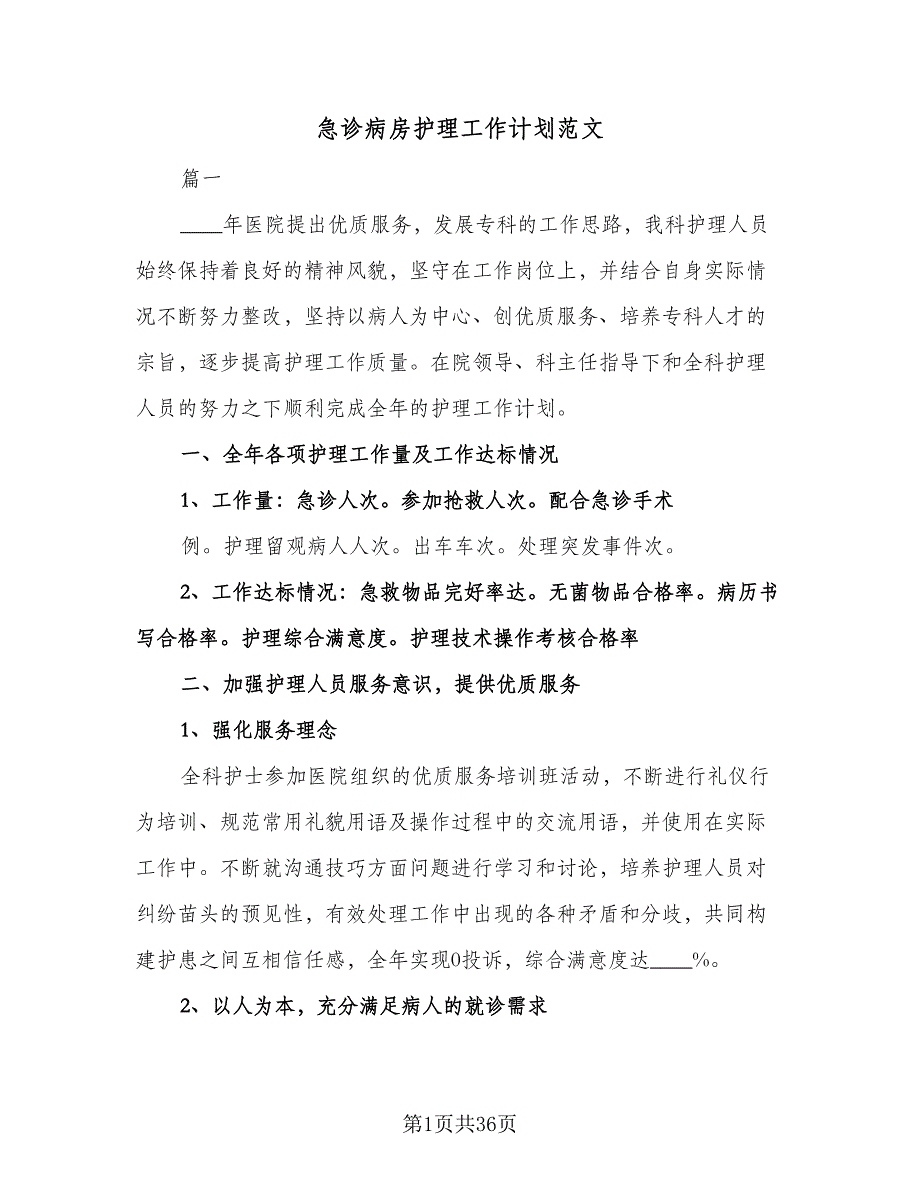 急诊病房护理工作计划范文
篇一
____年医院提出优质服务，发展专科的工作思路，我科护理人员
始终保持着良好的精神风貌，坚守在工作岗位上，并结合自身实际情
况不断努力整改，坚持以病人为中心、创优质服务、培养专科人才的
宗旨，逐步提高护理工作质量。在院领导、科主任指导下和全科护理
人员的努力之下顺利完成全年的护理工作计划。
一、全年各项护理工作量及工作达标情况
1、工作量：急诊人次。参加抢救人次。配合急诊手术
例。护理留观病人人次。出车车次。处理突发事件次。
2、工作达标情况：急救物品完好率达。无菌物品合格率。病历书
写合格率。护理综合满意度。护理技术操作考核合格率
二、加强护理人员服务意识，提供优质服务
1、强化服务理念
全科护士参加医院组织的优质服务培训班活动，不断进行礼仪行
为培训、规范常用礼貌用语及操作过程中的交流用语，并使用在实际
工作中。不断就沟通技巧方面问题进行学习和讨论，培养护理人员对
纠纷苗头的预见性，有效处理工作中出现的各种矛盾和分歧，共同构
建护患之间互相信任感，全年实现0投诉，综合满意度达____%。
2、以人为本，充分满足病人的就诊需求
第1页共36页